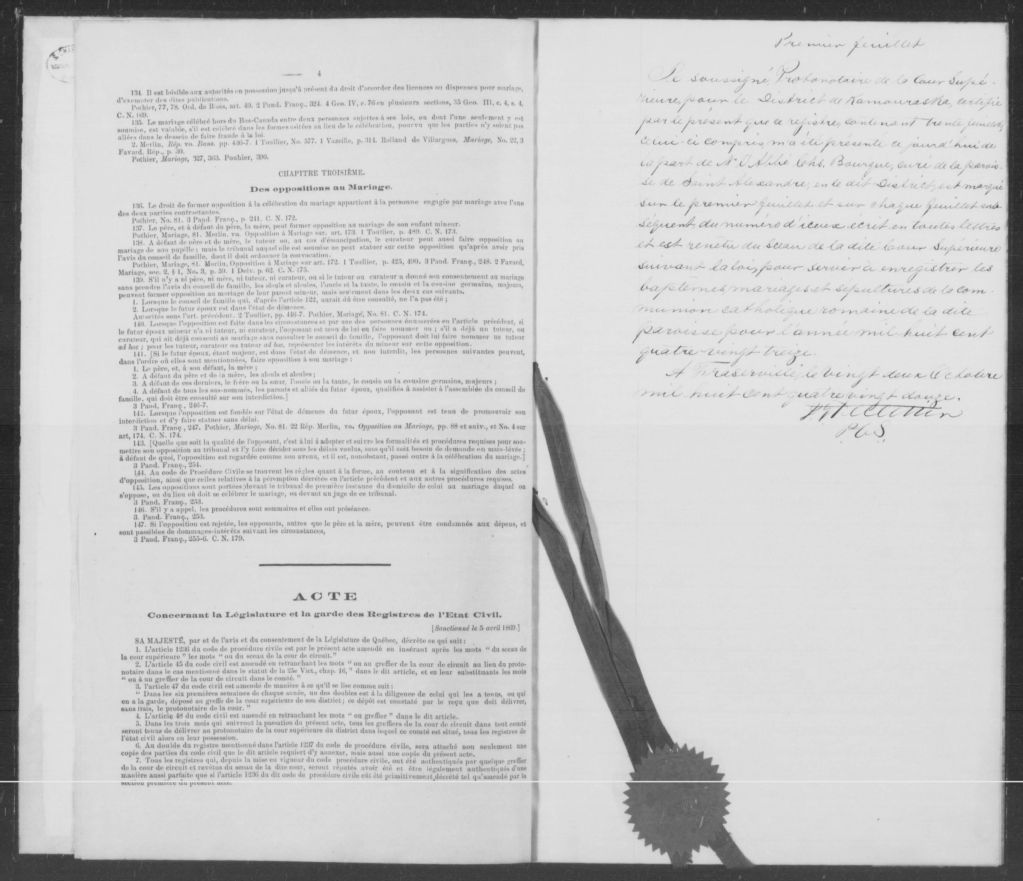 4
134. Il est loisible aux autorités en possession jusqu'à présent du droit d'accorder des licences ou dispenses pour mariage,
d'exempter des dites publications.
Pothier, 77, 78. Ord. de Blois, art. 40. 2 Pand. Franç., 324. 4 Geo. IV, c. 76 en plusieurs sections, 35 Geo. III, c. 4, s. 4,
C. N. 169.
135. Le mariage célébré hors du Bas-Canada entre deux personnes sujettes à ses lois, ou dont l'une seulement y est
soumise, est valable, s'il est célébré dans les formes usitées au lieu de la célébration, pourvu que les parties n'y soient pas
allées dans le dessein de faire fraude à la loi.
2. Merlin, Rép. vo. Bans. pp. 446-7. 1 Toullier, No. 577. 1 Vazeille, p. 314. Rolland de Villargues, Mariage, No. 22, 3
Favard, Rép., p. 59.
Pothier, Mariage, 327, 363. Pothier, 390.
CHAPITRE TROISIÈME.
Des oppositions au Mariage.
136. Le droit de former opposition à la célébration du mariage appartient à la personne engagée par mariage avec l'une
des deux parties contractantes.
Pothier, No. 81. 3 Pand. Franç., p. 241. C. N. 172.
137. Le père, et à défaut du père, la mère, peut former opposition au mariage de son enfant mineur.
Pothier, Mariage, 81. Merlin, vo. Opposition à Mariage sur art. 173. 1 Toullier, p. 489. C. N. 173.
138. A défaut de père et de mère, le tuteur ou, au cas d'émancipation, le curateur peut aussi faire opposition au
mariage de son pupille ; mais le tribunal auquel elle est soumise ne peut statuer sur cette opposition qu'après avoir pris
l'avis du conseil de famille, dont il doit ordonner la convocation.
Pothier, Mariage, 81. Merlin, Opposition à Mariage sur art. 172. 1 Toullier, p. 425, 490. 3 Pand. Franç., 248. 2 Favard,
Mariage, sec. 2, § 1, No. 3, p. 59. 1 Delv. p. 62. C. N. 175.
139. S'il n'y a ni père, ni mère, ni tuteur, ni curateur, ou si le tuteur ou curateur a donné son consentement au mariage
sans prendre l'avis du conseil de famille, les aïeuls et aïeules, l'oncle et la tante, le cousin et la cousine germains, majeurs,
peuvent former opposition au mariage de leur parent mineur, mais seulement dans les deux cas suivants.
1. Lorsque le conseil de famille qui, d'après l'article 122, aurait dû être consulté, ne l'a pas été ;
2. Lorsque le futur époux est dans l'état de démence.
Autorités sous l'art. précédent. 2 Toullier, pp. 446-7. Pothier, Mariage, No. 81. C. N. 174.
140. Lorsque l'opposition est faite dans les circonstances et par une des personnes énumérées en l'article précédent, si
le futur époux mineur n'a ni tuteur, ni curateur, l'opposant est tenu de lui en faire nommer un ; s'il a déjà un tuteur, ou
curateur, qui ait déjà consenti au mariage sans consulter le conseil de famille, l'opposant doit lui faire nommer un tuteur
ad hoc ; pour les tuteur, curateur ou tuteur ad hoc, représenter les intérêts du mineur sur cette opposition.
141. [Si le futur époux, étant majeur, est dans l'état de démence, et non interdit, les personnes suivantes peuvent,
dans l'ordre où elles sont mentionnées, faire opposition à son mariage :
1. Le père, et, à son défaut, la mère ;
2. A défaut du père et de la mère, les aïeuls et aïeules ;
3. A défaut de ces derniers, le frère ou la sœur, l'oncle ou la tante, le cousin ou la cousine germains, majeurs ;
4. A défaut de tous les sus-nommés, les parents et alliés du futur époux, qualifiés à assister à l'assemblée de conseil de
famille, qui doit être consulté sur son interdiction.]
3 Pand. Franç., 246-7.
142. Lorsque l'opposition est fondée sur l'état de démence du futur époux, l'opposant est tenu de promouvoir son
interdiction et d'y faire statuer sans délai.
3 Pand. Franç., 247. Pothier, Mariage, No. 81. 22 Rép. Merlin, vo. Opposition au Mariage, pp. 88 et suiv., et No. 4 sur
art, 174. C. N. 174.
143. [Quelque que soit la qualité de l'opposant, c'est à lui à adopter et suivre les formalités et procédures requises pour sou-
mettre son opposition au tribunal et l'y faire décider sous les délais voulus, sans qu'il soit besoin de demande en main-levée ;
à défaut de quoi, l'opposition est regardée comme non avenue, et il est, nonobstant, passé outre à la célébration du mariage.]
3 Pand. Franç., 254.
144. Au code de Procédure Civile se trouvent les règles quant à la forme, au contenu et à la signification des actes
d'opposition, ainsi que celles relatives à la péremption décrétée en l'article précédent et aux autres procédures requises.
145. Les oppositions sont portées devant le tribunal de première instance du domicile de celui au mariage duquel on
s'oppose, ou du lieu où doit se célébrer le mariage, ou devant un juge de ce tribunal.
3 Pand. Franç., 253.
146. S'il y a appel, les procédures sont sommaires et elles ont préséance.
3. Pand. Franç., 253.
147. Si l'opposition est rejetée, les opposants, autres que le père et la mère, peuvent être condamnés aux dépens, et
sont passibles de dommages-intérêts suivant les circonstances,
3 Pand. Franç., 255-6. C. N. 179.
ACTE
Concernant la Législature et la garde des Registres de l'Etat Civil.
[Sanctionné le 5 avril 1869.]
SA MAJESTÉ, par et de l'avis et du consentement de la Législature de Québec, décrète ce qui suit :
1. L'article 1236 du code de procédure civile est par le présent acte amendé en insérant après les mots " du sceau de
la cour supérieure " les mots " ou du sceau de la cour de circuit."
2. L'article 45 du code civil est amendé en retranchant les mots " ou au greffier de la cour de circuit au lieu du proto-
notaire dans le cas mentionné dans le statut de la 25e Vict., chap. 16, " dans le dit article, et en leur substituants les mots
" ou à un greffier de la cour de circuit dans le comté."
3. l'article 47 du code civil est amendé de manière à ce qu'il se lise comme suit :
" Dans les six premières semaines de chaque année, un des doubles est à la diligence de celui qui les a tenus, ou qui
en a la garde, déposé au greffe de la cour supérieure de son district ; ce dépôt est constaté par le reçu que doit délivrer,
sans frais, le protonotaire de la cour. "
4. L'article 48 du code civil est amendé en retranchant les mots " ou greffier " dans le dit article.
5. Dans les trois mois qui suivront la passation du présent acte, tous les greffiers de la cour de circuit dans tout comté
seront tenus de délivrer au protonotaire de la cour supérieure du district dans lequel ce comté est situé, tous les registres de
l'état civil alors en leur possession.
6. Au double du registre mentionné dans l'article 1237 du code de procédure civile, sera attaché non seulement une
copie des parties du code civil que le dit article requiert d'y annexer, mais aussi une copie du présent acte.
7. Tous les registres qui, depuis la mise en vigueur du code procédure civile, ont été authentiqués par quelque greffier
de la cour de circuit et revêtus du sceau de la dite cour, seront réputés avoir été et être légalement authentiqués d'une
manière aussi parfaite que si l'article 1236 du dit code de procédure civile eût été primitivement décrété tel qu'amendé par la
section première du présent acte.
Premier feuillet
Je soussigné Protonotaire de la Cour Supé-
rieure, pour le District de Kamouraska, certifie
par le présent que ce registre contenant trente feuillets
celui-ci compris, m'a été présenté ce jourd'hui de
la part de Mr l'Abbé Chs. Bourque, curé de la parois-
se de Saint Alexandre, en le dit District, est marqué
sur le premier feuillet et sur chaque feuillet sub-
séquent du numéro d'iceux écrit en toutes lettres
et est revêtu du sceau de la dite Cour Supérieure
suivant la loi, pour servir à enregistrer les
baptêmes, mariages et sépultures de la com-
munion catholique romaine de la dite
paroisse pour l'année mil huit cent
quatre-vingt treize.
A Fraserville, le vingt deux Octobre
mil huit cent quatre vingt douze.
P.C.S